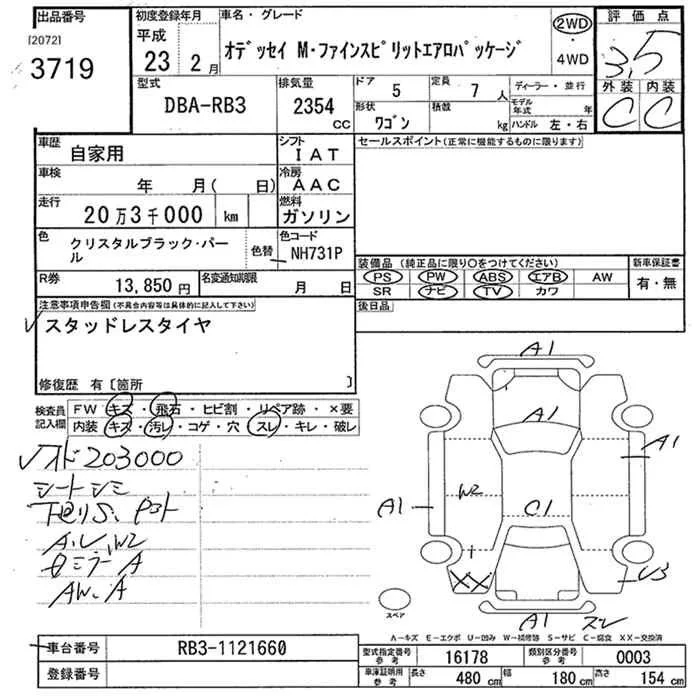 出品番号
[2072]
3719
初度登録年月
平成
23 2月
車名・グレード
オデッセイ M・ファインスピリットエアロパッケージ
2WD
4WD
評価点
3.5
外装 内装
C C
型式
DBA-RB3
排気量
2354
CC
ドア
5
定員
7 人
形状
ワゴン
積載
kg
ディーラー・並行
モデル年式 年
ハンドル 左・右
車歴
自家用
シフト
IAT
セールスポイント(正常に機能するものに限ります)
車検
年 月( 日)
冷房
AAC
走行
20万3千000 km
燃料
ガソリン
色
クリスタルブラック・パール
色替
色コード
NH731P
装備品 (純正品に限り○をつけてください)
PS PW ABS エアB AW
SR ナビ TV カワ
新車保証書
有・無
R券
13,850円
名変通知期限
月 日
後日品
注意事項申告欄(不具合内容等は具体的に記入して下さい)
スタッドレスタイヤ
修復歴 有〔箇所 〕
検査員記入欄
FW キズ・飛石・ヒビ割・リペア跡・×要
内装 キズ・汚レ・コゲ・穴・スレ・キレ・破レ
203000
シートシミ
A.L W2
AW.A
A1
A1
A1
A1
W2
C1
XX
U3
A1
スペア
A－キズ E－エクボ U－凹み W－補修跡 S－サビ C－腐食 XX－交換済
車台番号
RB3-1121660
登録番号
型式指定番号
参考
16178
類別区分番号
参考
0003
車庫証明用
参考
長さ
480 cm
幅
180 cm
高さ
154 cm